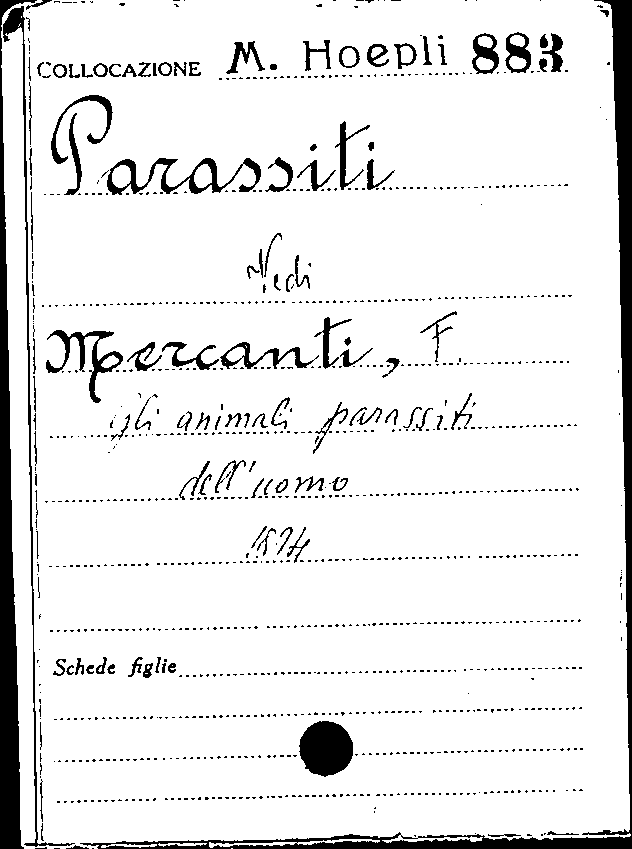 COLLOCAZIONE M. Hoepli 883
Parassiti
Vedi
Mercanti, F.
gli animali parassiti
dell'uomo
1894
Schede figlie